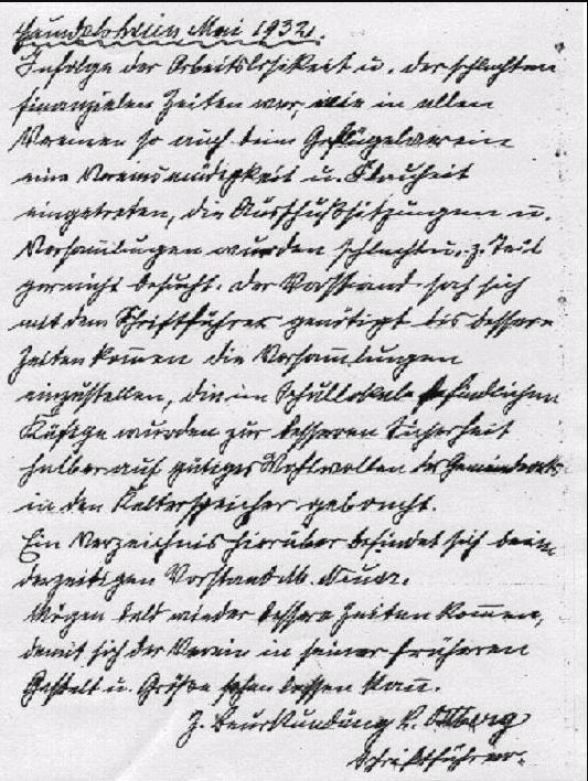 Mai 1932.
Infolge der Arbeitslosikeit u. der schlechten
finanzielen Zeiten war, wie in allen
Vereinen so auch beim Geflügelverein
eine Vereinsmüdigkeit u. Flauheit
eingetreten, die Ausschußsitzungen u.
Versam̄lungen wurden schlecht u. z. Teil
gar nicht besucht. Der Vorstand sah sich
mit dem Schriftführer genötigt bis bessere
Zeiten kom̄en die Versam̄lungen
einzustellen, die im Schullokale befindlichen
Käfige wurden zur besseren Sicherheit
halber auf gütiges Wohlwollen des Gemeinderats
in den Kelterspeicher gebracht.
Ein Verzeichnis hierüber befindet sich beim
derzeitigen Vorstand
Mögen bald wieder bessere Zeiten kom̄en,
damit sich der Verein in seiner früheren
Gestalt u. Größe sehen lassen kan̄.
Z. Beurkundung
Schriftführer.